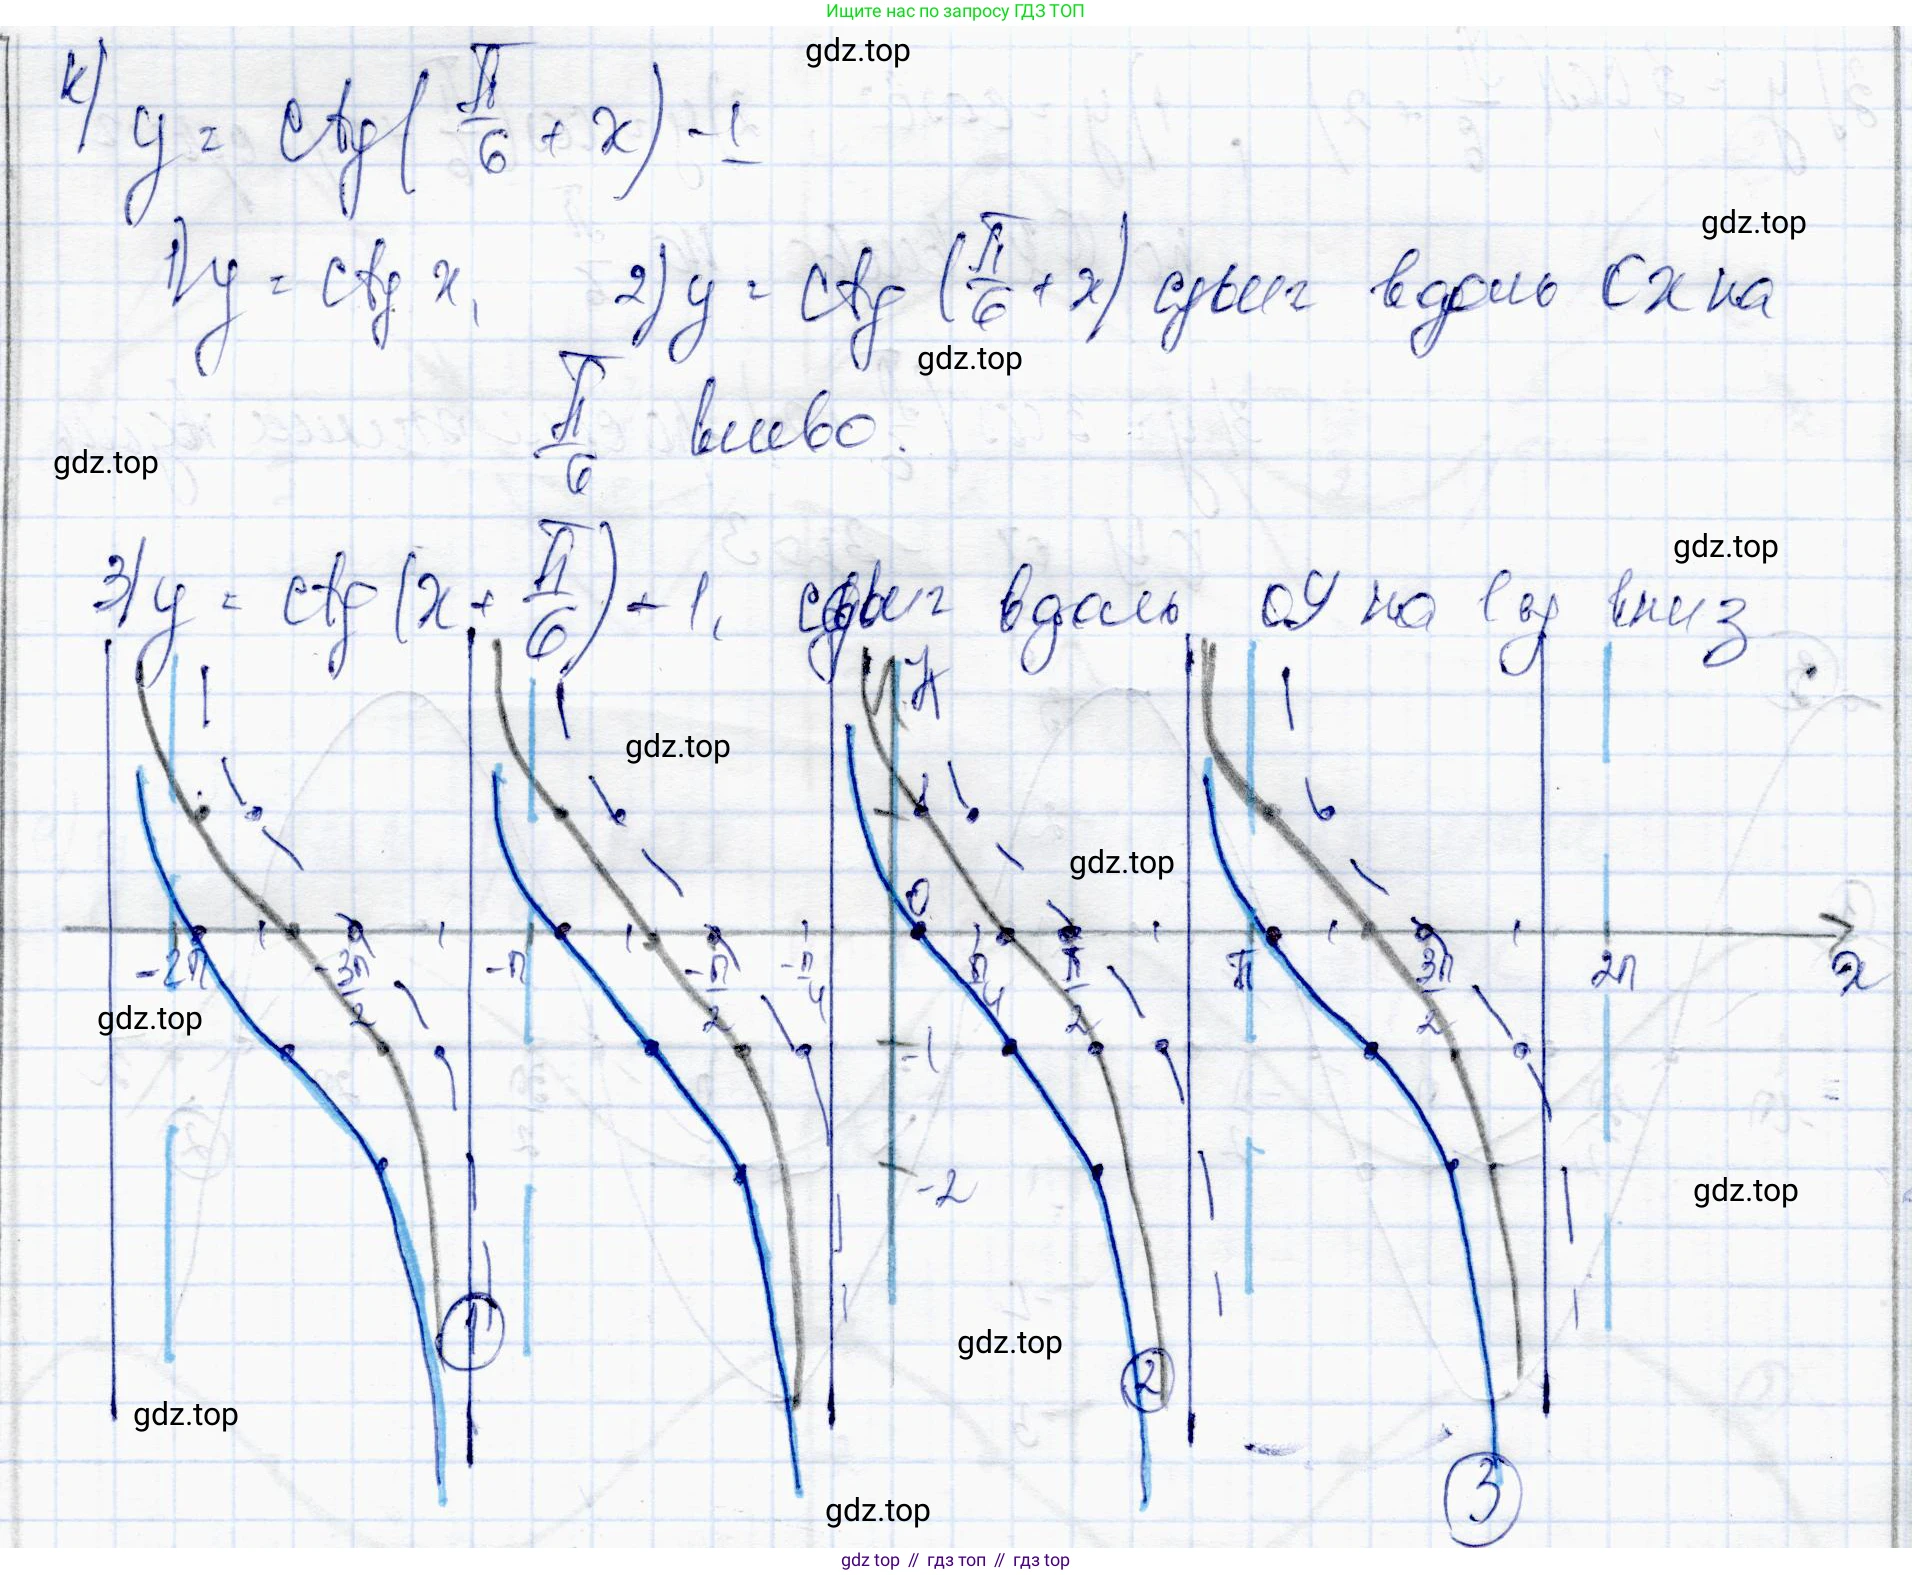 Ищите нас по запросу ГДЗ ТОП
gdz.top
к) y = ctg(π/6 + x) - 1
gdz.top
1) y = ctg x, 2) y = ctg (π/6 + x) сдвиг вдоль OX на
gdz.top
π/6 влево.
gdz.top
gdz.top
3) y = ctg(x + π/6) - 1, сдвиг вдоль OY на 1 ед вниз
y
gdz.top
1
gdz.top
0
-2π -3π/2 -π -π/2 -π/4 π/4 π/2 π 3π/2 2π x
gdz.top
-1
-2
gdz.top
1
gdz.top
2
gdz.top
3
gdz.top
gdz top // гдз топ // гдз top